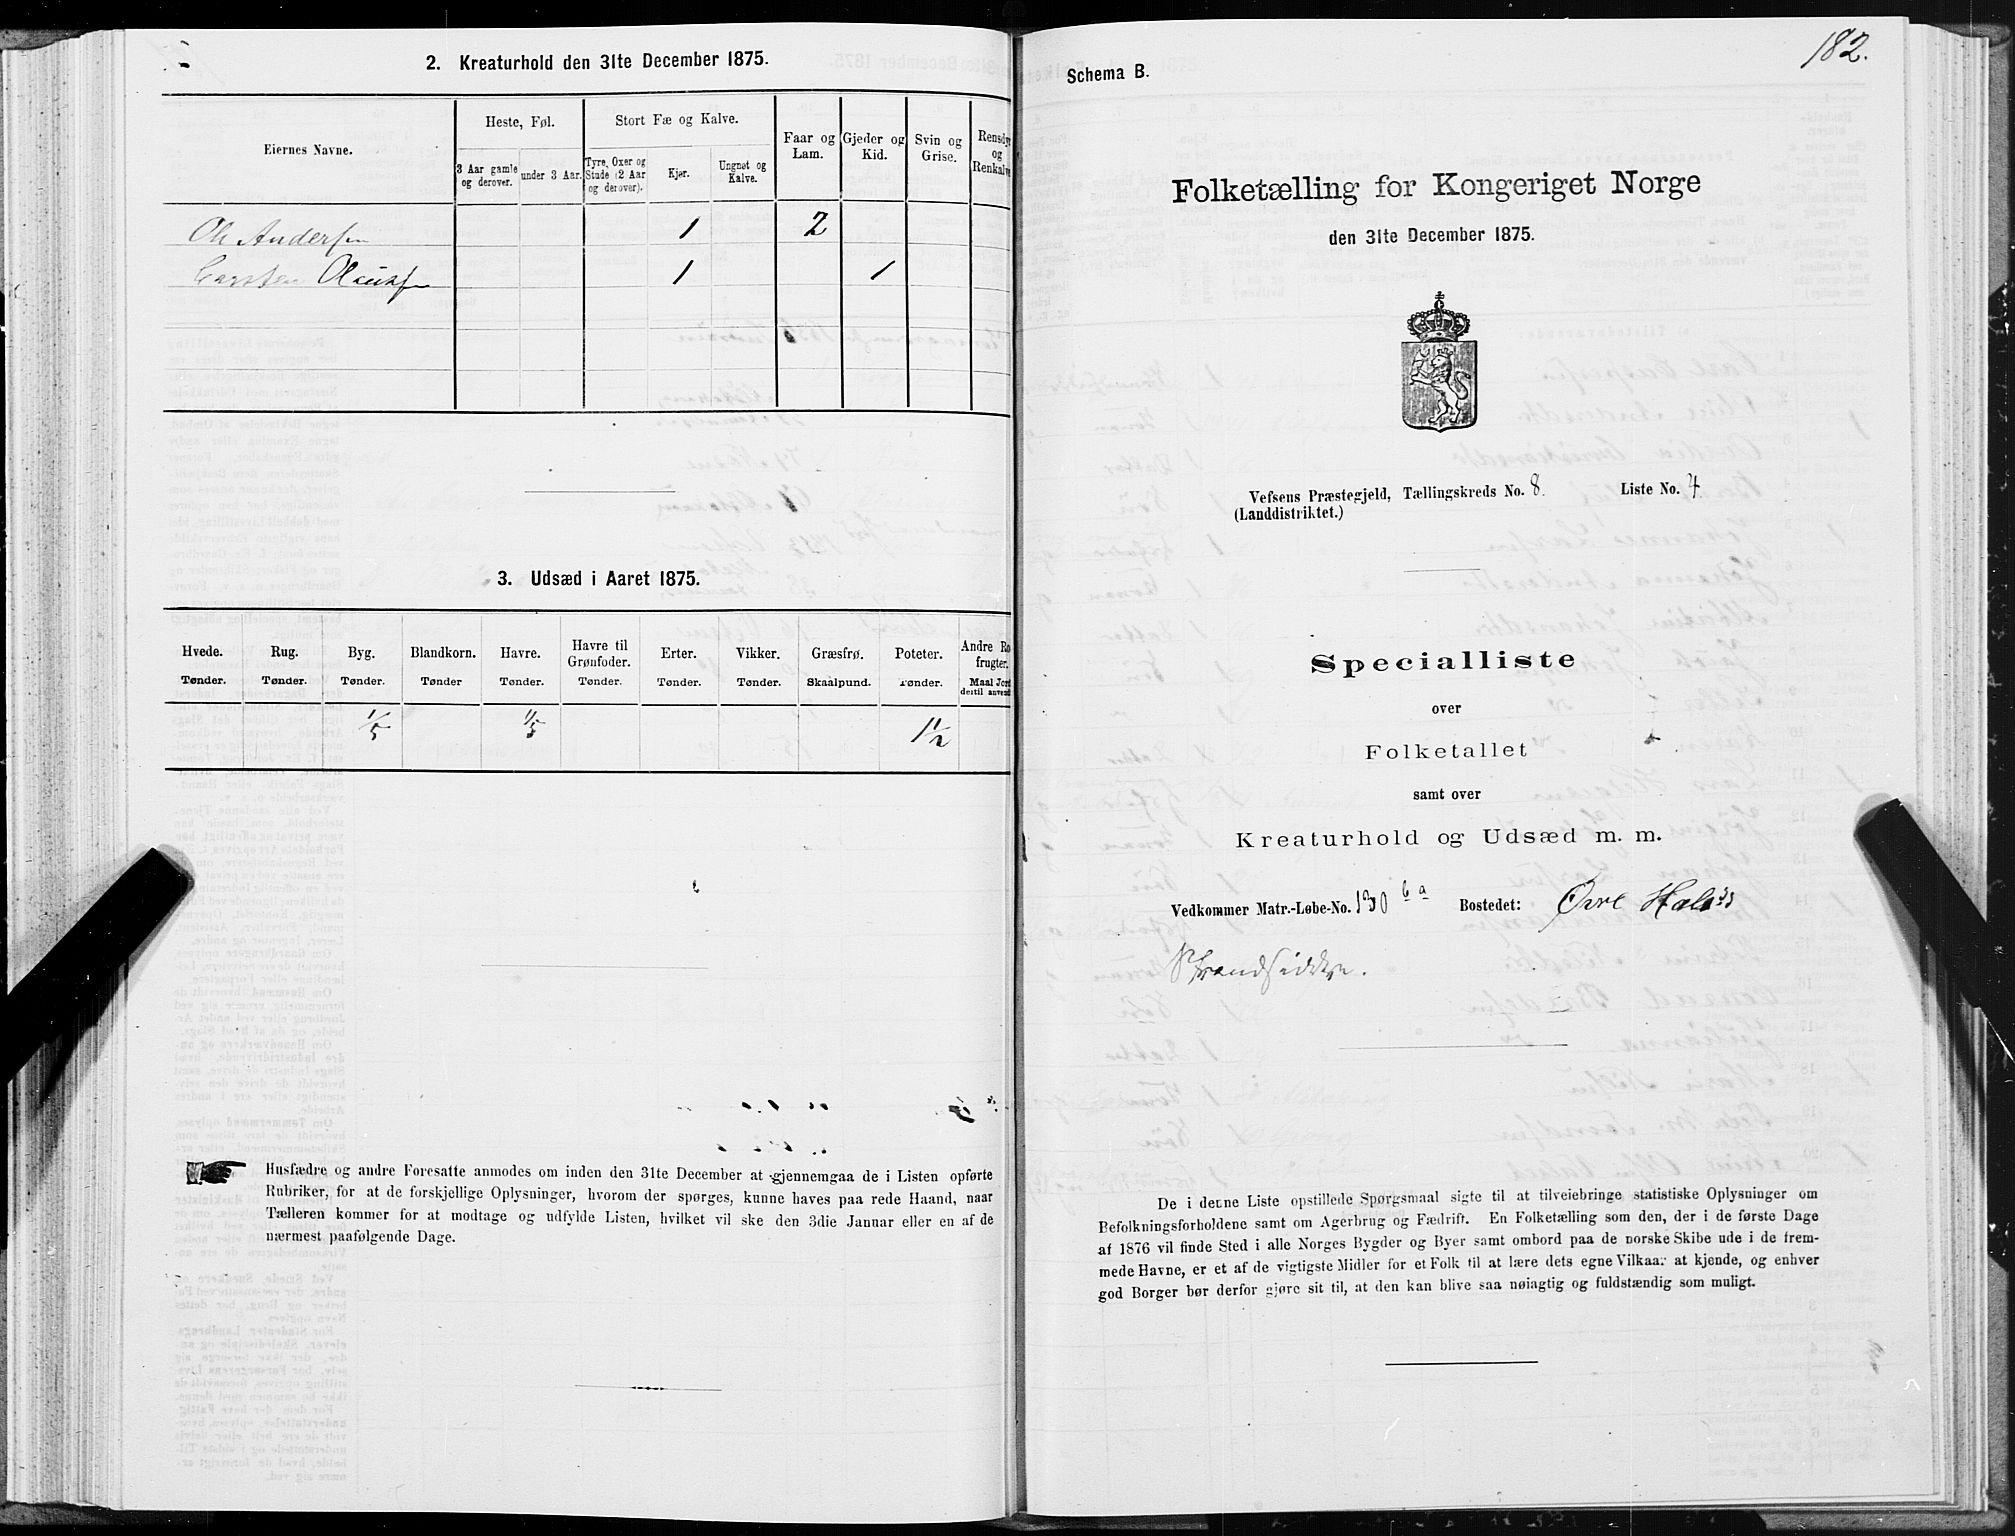 2. Kreaturhold den 31te December 1875.
Eiernes Navne.
Heste, Føl.
Stort Fæ og Kalve.
Faar og Lam.
Gjeder og Kid.
Svin og Grise.
Rensdyr og Renkalve
3 Aar gamle og derover.
under 3 Aar.
Tyre, Oxer og Stude (2 Aar og derover).
Kjør.
Ungnøt og Kalve.
Ole Andersen 1 2
Carsten Olausen 1 1
3. Udsæd i Aaret 1875.
Hvede. Rug. Byg. Blandkorn. Havre. Havre til Grønfoder. Erter. Vikker. Græsfrø. Poteter. Andre Ro frugter.
Tønder. Tønder. Tønder. Tønder Tønder. Tønder. Tønder. Tønder. Skaalpund. Tønder. Maal Jord dertil anvend
1/5 1/5 1 1/2
Husfædre og andre Foresatte anmodes om inden den 31te December at gjennemgaa de i Listen opførte
Rubriker, for at de forskjellige Oplysninger, hvorom der spørges, kunne haves paa rede Haand, naar
Tælleren kommer for at modtage og udfylde Listen, hvilket vil ske den 3die Januar eller en af de
nærmest paafølgende Dage.
182.
Schema B.
Folketælling for Kongeriget Norge
den 31te December 1875.
Vefsens Præstegjeld, Tællingskreds No. 8. Liste No. 4
(Landdistriktet.)
Specialliste
over
Folketallet
samt over
Kreaturhold og Udsæd m. m.
Vedkommer Matr.-Løbe-No. 130 6a Bostedet: Øvre Hals
De i denne Liste opstillede Spørgsmaal sigte til at tilveiebringe statistiske Oplysninger om
Befolkningsforholdene samt om Agerbrug og Fædrift. En Folketælling som den, der i de første Dage
af 1876 vil finde Sted i alle Norges Bygder og Byer samt ombord paa de norske Skibe ude i de frem-
mede Havne, er et af de vigtigste Midler for et Folk til at lære dets egne Vilkaar at kjende, og enhver
god Borger bør derfor gjøre sit til, at den kan blive saa nøiagtig og fuldstændig som muligt.